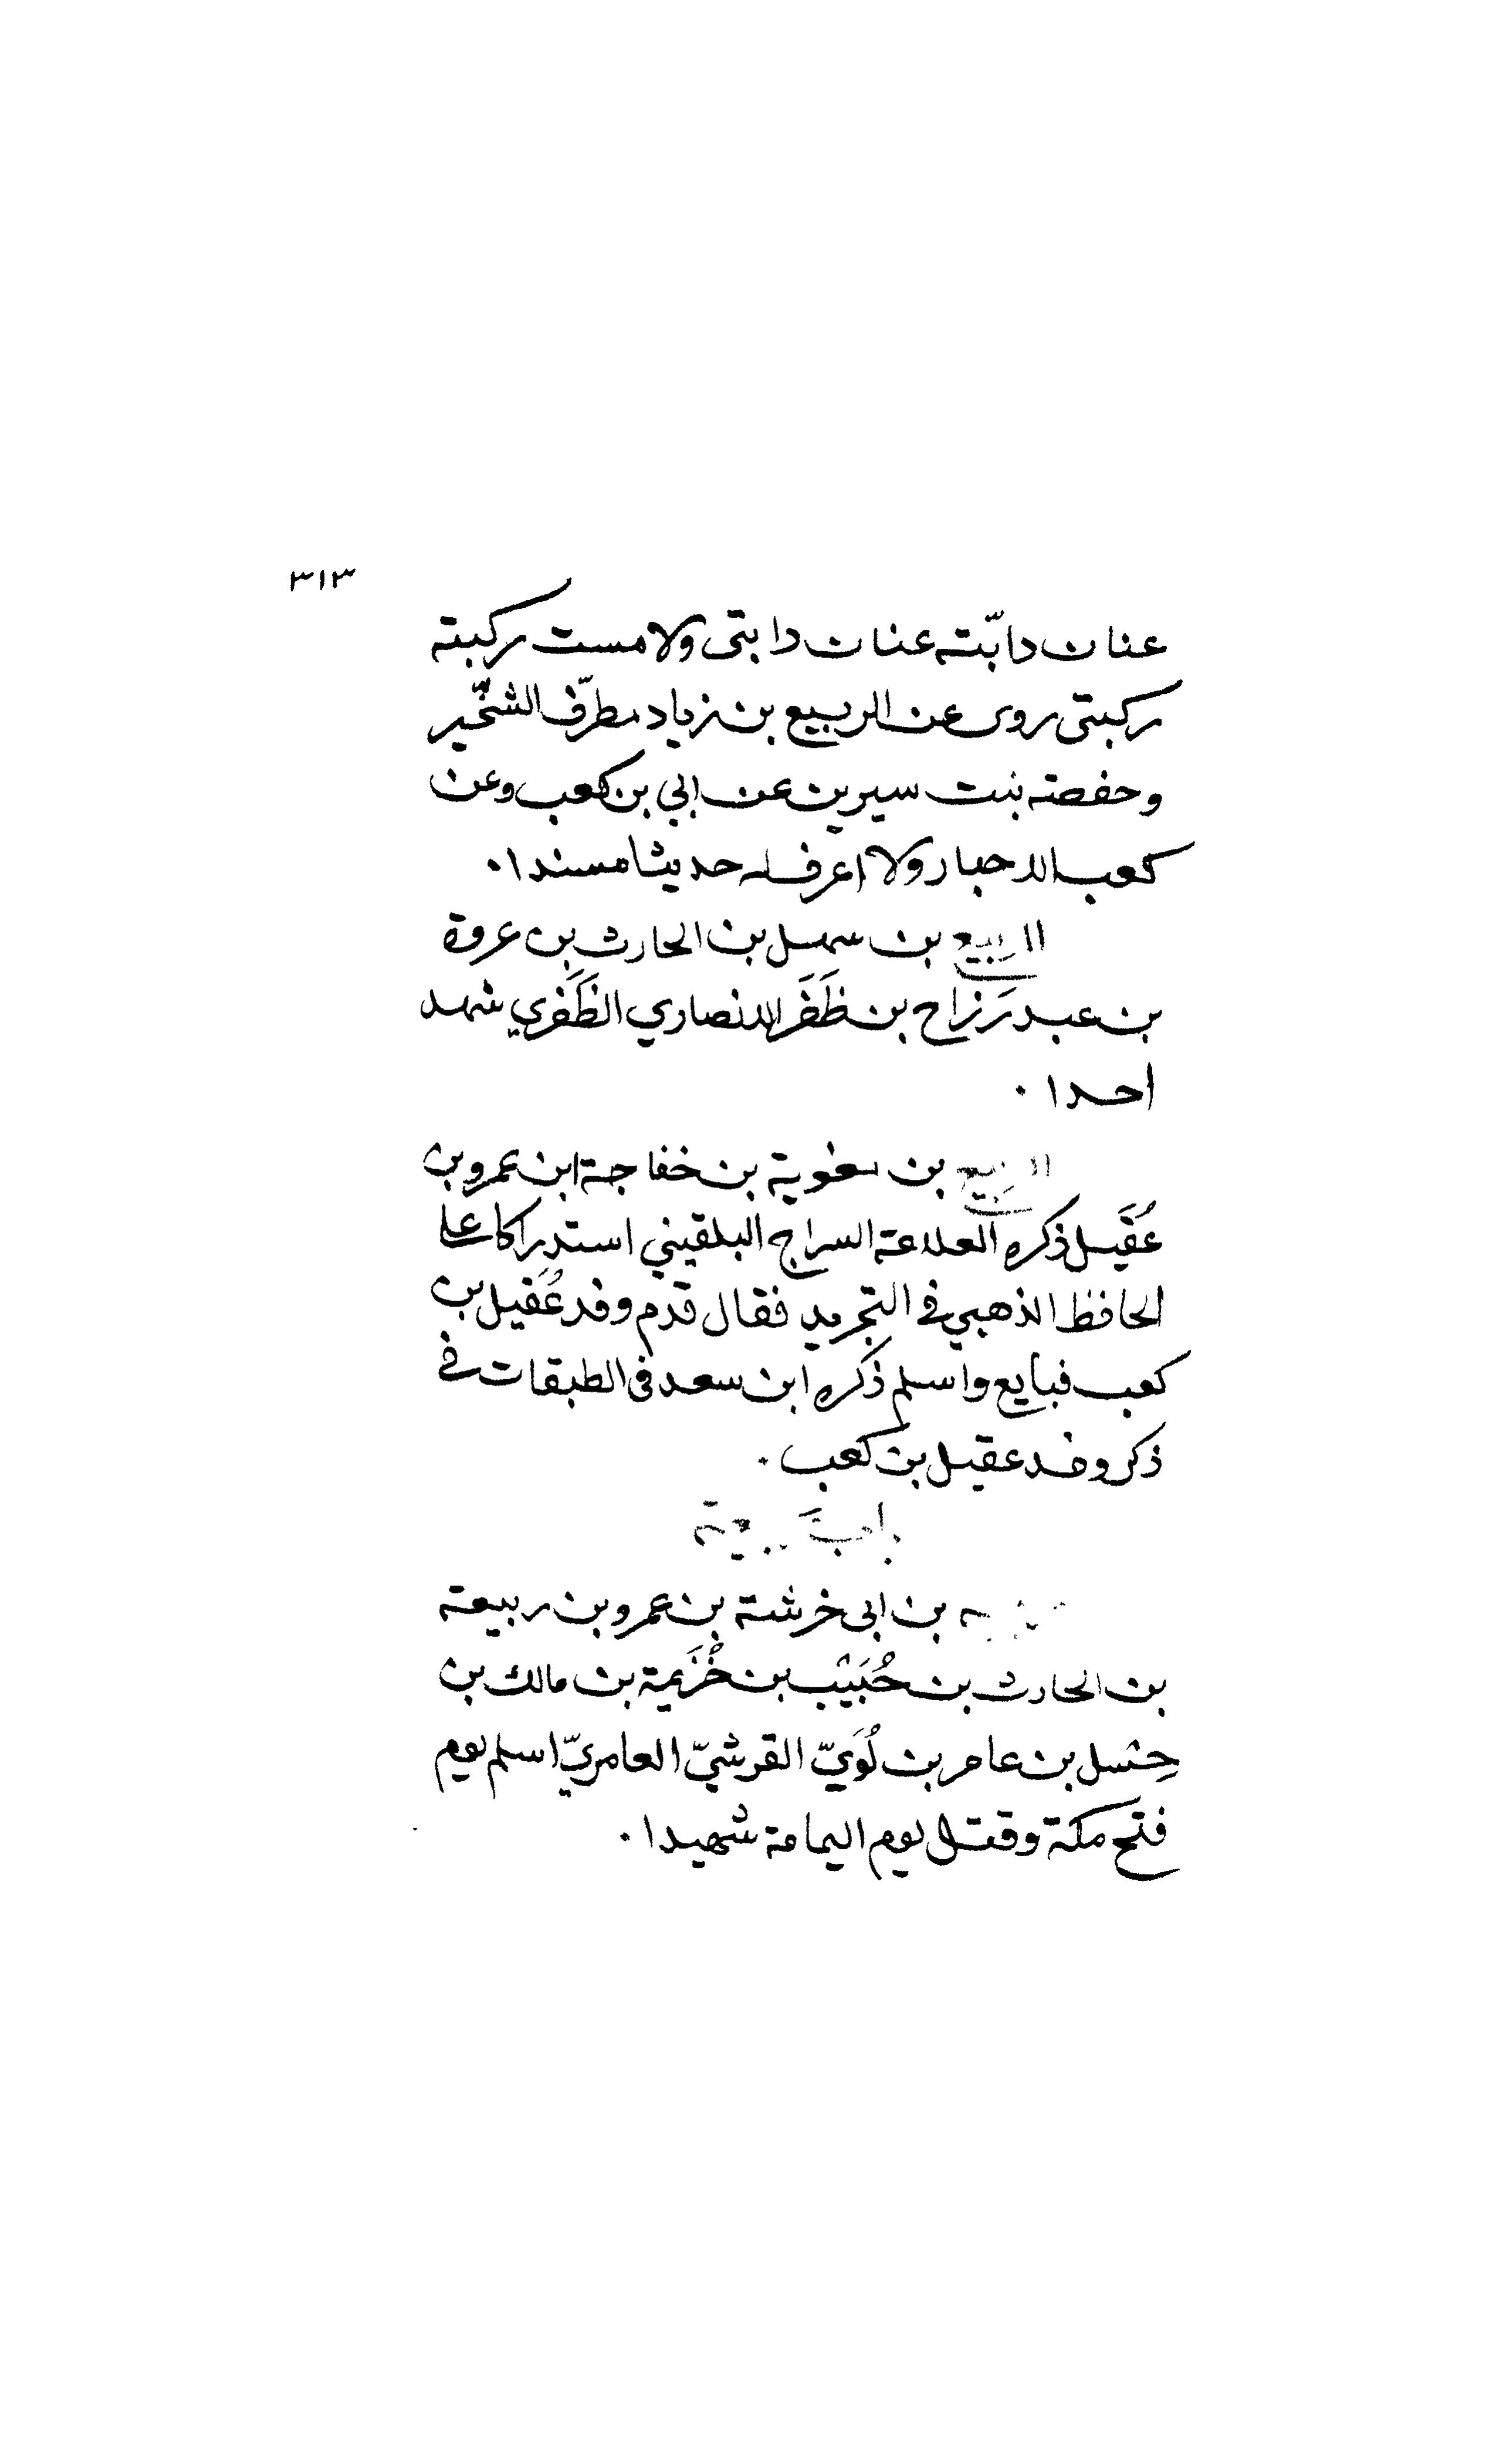 ٣١٣
عنان دابّته عنان دابتى ولا مست ركبته
ركبتى روى عن الربيع بن زياد مطرّف الشخّير
وحفصة بنت سيرين عن ابي بن كعب وعن
كعب الاحبار ولا اعرف له حديثا مسندا .
الربيع بن سهيل بن الحارث بن عروة
بن عبد رَزاح بن ظَفَر الانصاري الظَفَري شهد
احدا .
الربيع بن معوية بن خفاجة ابن عمرو بن
عُقَيل ذكره العلامة السراج البلقيني استدراكا على
الحافظ الذهبي في التجريد فقال قدم وفد عُقَيل بن
كعب فبايع واسلم ذكره ابن سعد فى الطبقات في
ذكر وفد عقيل بن كعب .
بن ابى خرشة بن عمرو بن ربيعة
بن الحارث بن حُبَيْب بن خُزَيمة بن مالك بن
حِسْل بن عامر بن لُوَيّ القرشيّ العامريّ اسلم يوم
فتح مكة وقتل يوم اليمامة شهيدا .